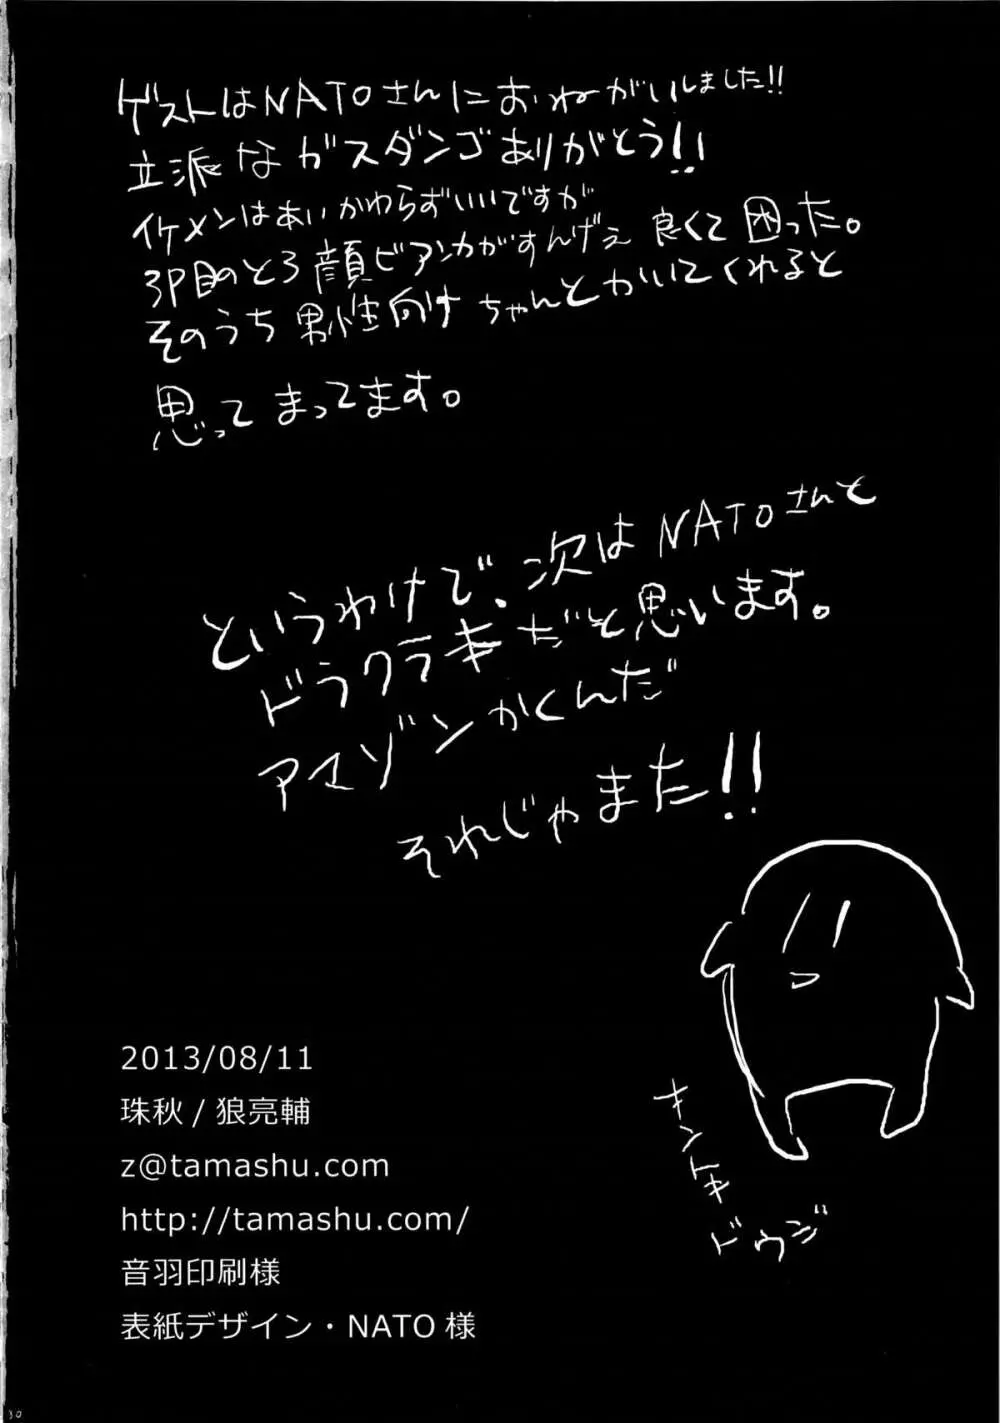 ゲストはNATOさんにおねがいしました!!
立派なガスダンゴありがとう!!
イケメンはあいかわらずいいですが
3P目のとろ顔ビアンカがすんげぇ良くて困った。
そのうち男性向けちゃんとかいてくれると
思ってまってます。
というわけで、次はNATOさんと
ドラクラ本だと思います。
アマゾンかくんだ
それじゃまた!!
2013/08/11
珠秋 / 狼亮輔
z@tamashu.com
http://tamashu.com/
音羽印刷様
表紙デザイン・NATO 様
ドウジ
30